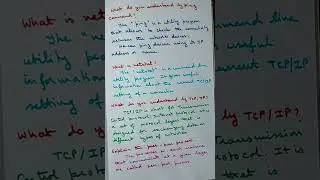 What do you understand by ping
command?
The "ping" is a utility program
that allows to check the connectivity
between the network devices.
We can ping devices using its IP
address or name.
What is netstat?
The "netstat" is a command line
utility program. It gives useful
information about the current TCP/IP
setting of a connection.
What do you understand by TCP/IP?
TCP/IP is short for Transmission
Control protocol/Internet protocol. It is
a set of protocol layers that is
designed for exchanging data on
different types of networks.
Explain the peer-peer process
The processes on each machine
that communicate at a given layer
are called peer-peer process.